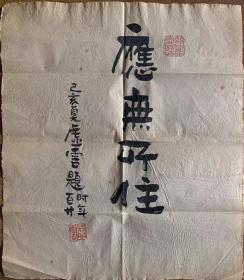 應無所住
己亥夏虛雲題
時年百廿